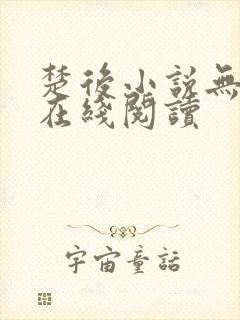 楚後小説無
在綫閱讀
宇宙童話